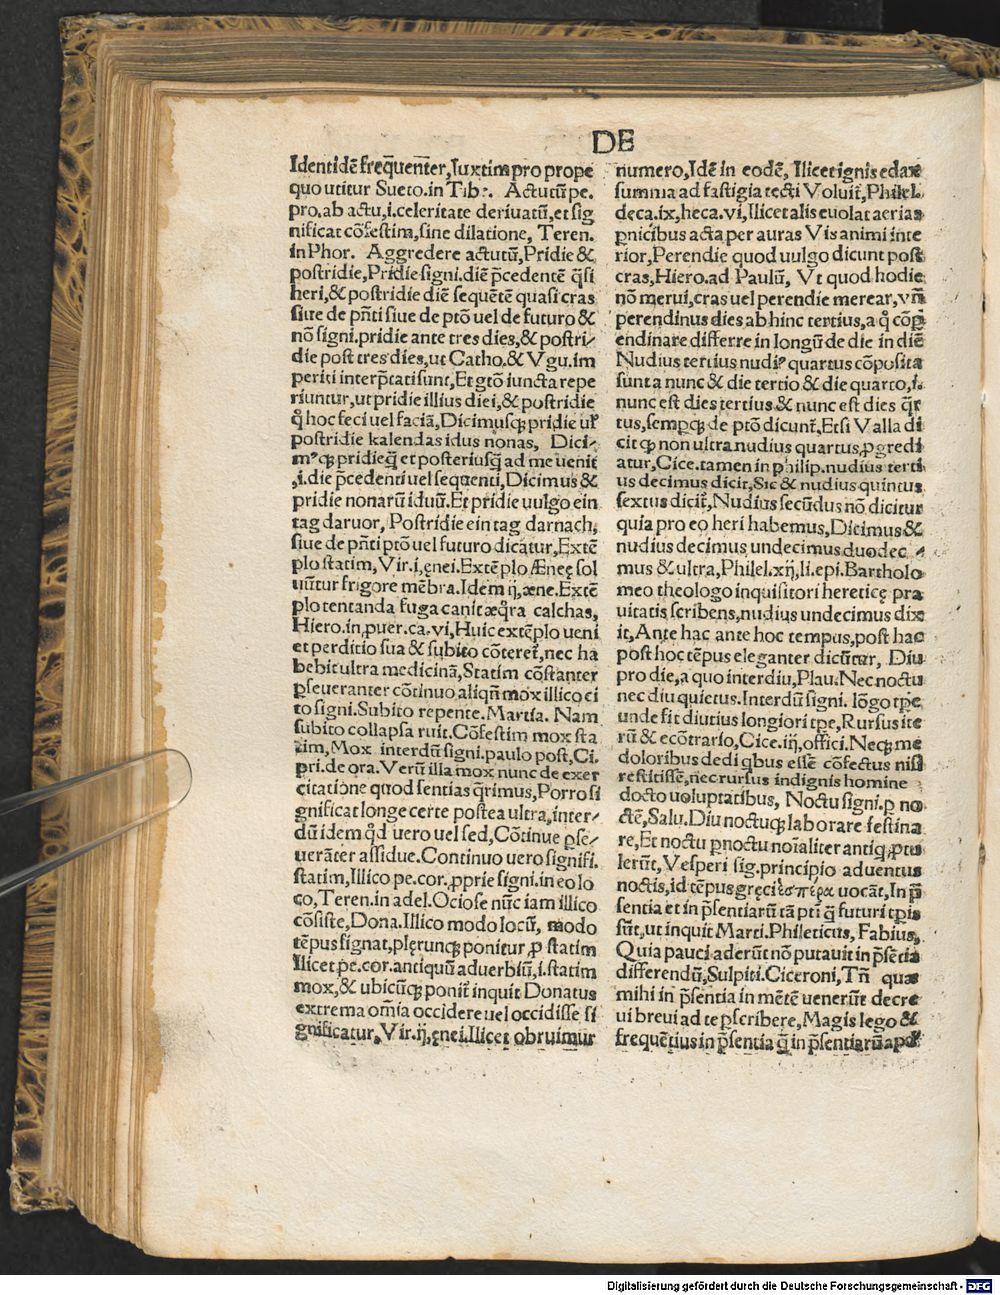 DE
Identidē freq̄uenter, Iuxtim pro prope
quo utitur Sueto.in Tib⁊. Actutū pe.
pro.ab actu,i.celeritate deriuatū,et sig
nificat cōfestim,sine dilatione, Teren.
in Phor. Aggredere actutū,Pridie &
postridie,Pridie signi.diē p̄cedentē q̄si
heri,& postridie diē sequētē quasi cras
siue de pn̄ti siue de ptō uel de futuro &
nō signi.pridie ante tres dies,& postri/
die post tres dies,ut Catho.& Vgu.im
periti interp̄tati sunt,Et gtō iuncta repe
riuntur,ut pridie illius diei,& postridie
q̊ hoc feci uel faciā,Dicimusq; pridie ul̄
postridie kalendas idus nonas, Dici/
mꝰq; pridieq̄ et posteriusq̄ ad me uenit
,i.die p̄cedenti uel sequenti,Dicimus &
pridie nonarū iduū.Et pridie uulgo ein
tag daruor, Postridie ein tag darnach,
siue de pn̄ti ptō uel futuro dicātur,Extē
plo statim,Vir.i,ęnei.Extēplo Æneę sol
uūtur frigore mēbra.Idem ij,æne.Extē
plo tentanda fuga canit æq̊ra calchas,
Hiero.in,puer.ca.vi,Huic extēplo ueni
et perditio sua & subito cōteret̄,nec ha
bebit ultra medicinā,Statim cōstanter
ꝑseueranter cōtinuo aliqn̄ mox illico ci
to signi.Subito repente.Martia. Nam
subito collapsa ruit.Cōfestim mox sta
tim,Mox interdū signi.paulo post,Ci.
pri.de ora.Verū illa mox nunc de exer
citatione quod sentias q̄rimus,Porro si
gnificat longe certe postea ultra,inter/
dū idem q̄d uero uel sed,Cōtinue ꝑse/
uerāter assidue.Continuo uero signifi.
statim,Illico pe.cor.ꝓprie signi.in eo lo
co,Teren.in adel.Ociose nūc iam illico
cōsiste,Dona.Illico modo locū, modo
tēpus signat,plęrunq; ponitur ꝓ statim
Ilicet pe.cor.antiquū aduerbiū,i.statim
mox,& ubicūq; ponit̄ inquit Donatus
extrema om̄ia occidere uel occidisse si
gnificatur,Vir.ij,ęnei.Ilicet obruimur
numero,Idē in eodē, Ilicet ignis edax
summa ad fastigia tecti Voluit̄,Philel.
deca.ix,heca.vi,Ilicet alis euolat aerias
ꝑnicibus acta per auras Vis animi inte
rior,Perendie quod uulgo dicunt post
cras,Hiero.ad Paulū, Vt quod hodie
nō merui,cras uel perendie merear,vn̄
perendinus dies abhinc tertius,a q̊ cōꝑ
endinare differre in longū de die in diē
Nudius tertius nudiꝰ quartus cōposita
sunt a nunc & die tertio & die quarto,i.
nunc est dies tertius & nunc est dies q̄r
tus,sempq; de ptō dicunt̄,Etsi Valla di
cit q; non ultra nudius quartus,ꝓgredi
atur,Cice.tamen in philip.nudius terti
us decimus dicit,Sic & nudius quintus
sextus dicit̄,Nudius secūdus nō dicitur
quia pro eo heri habemus,Dicimus &
nudius decimus undecimus duodec
mus & ultra,Philel.xij,li.epi.Bartholo
meo theologo inquisitori heretice pra
uitatis scribens,nudius undecimus dix
it,Ante hac ante hoc tempus,post hac
post hoc tēpus eleganter dicūtur, Diu
pro die,a quo interdiu,Plau.Nec noctu
nec diu quietus.Interdū signi. lōgo tp̄e
unde fit diutius longiori tp̄e,Rursus ite
rū & econtrario,Cice.iij,offici.Neq; me
doloribus dedi q̄bus essē cōfectus nisi
restitissē,nec rursus indignis homine
docto uoluptatibus, Noctu signi.ꝑ no
ctē,Salu.Diu noctuq; laborare festina
re,Et noctu ꝑnoctu noīaliter antiq̨ ꝓtu
lerūt,Vesperi sig.principio aduentus
noctis,id tēpus gręci ἑσπέρα uocāt,In p̄
sentia et in p̄sentiarū tā pti q̄ futuri tp̄is
sūt,ut inquit Marti.Phileticus, Fabius,
Quia pauci aderūt nō putauit in p̄sētia
differendū,Sulpiti.Ciceroni, Tn̄ quae
mihi in p̄sentia in mētē uenerūt decre
ui breui ad te ꝑscribere,Magis lego &
frequētius in p̄sentia q̄ in p̄sentiarū apd̄
Digitalisierung gefördert durch die Deutsche Forschungsgemeinschaft - DFG